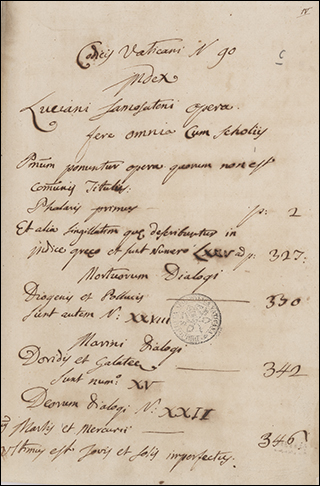 IV
Codicis Vaticani N 90
C
Index
Luciani Samosateni opera
fere omnia Cum Scholiis
Primum ponuntur opera quorum non est
Comunis Titulus.
Phalaris primus — p: 2
Et alia singillatim que describuntur in
indice greco et sunt Numero ad p: 327:
Mortuorum Dialogi
Diogenis et Pollucis — 330
Sunt autem N: XXVIII
Marini Dialogi
Doridis et Galatee — 342
Sunt num: XV
Deorum Dialogi N: XXII
Martis et Mercurii — 346
Ultimus est Jovis et Solis imperfectus.